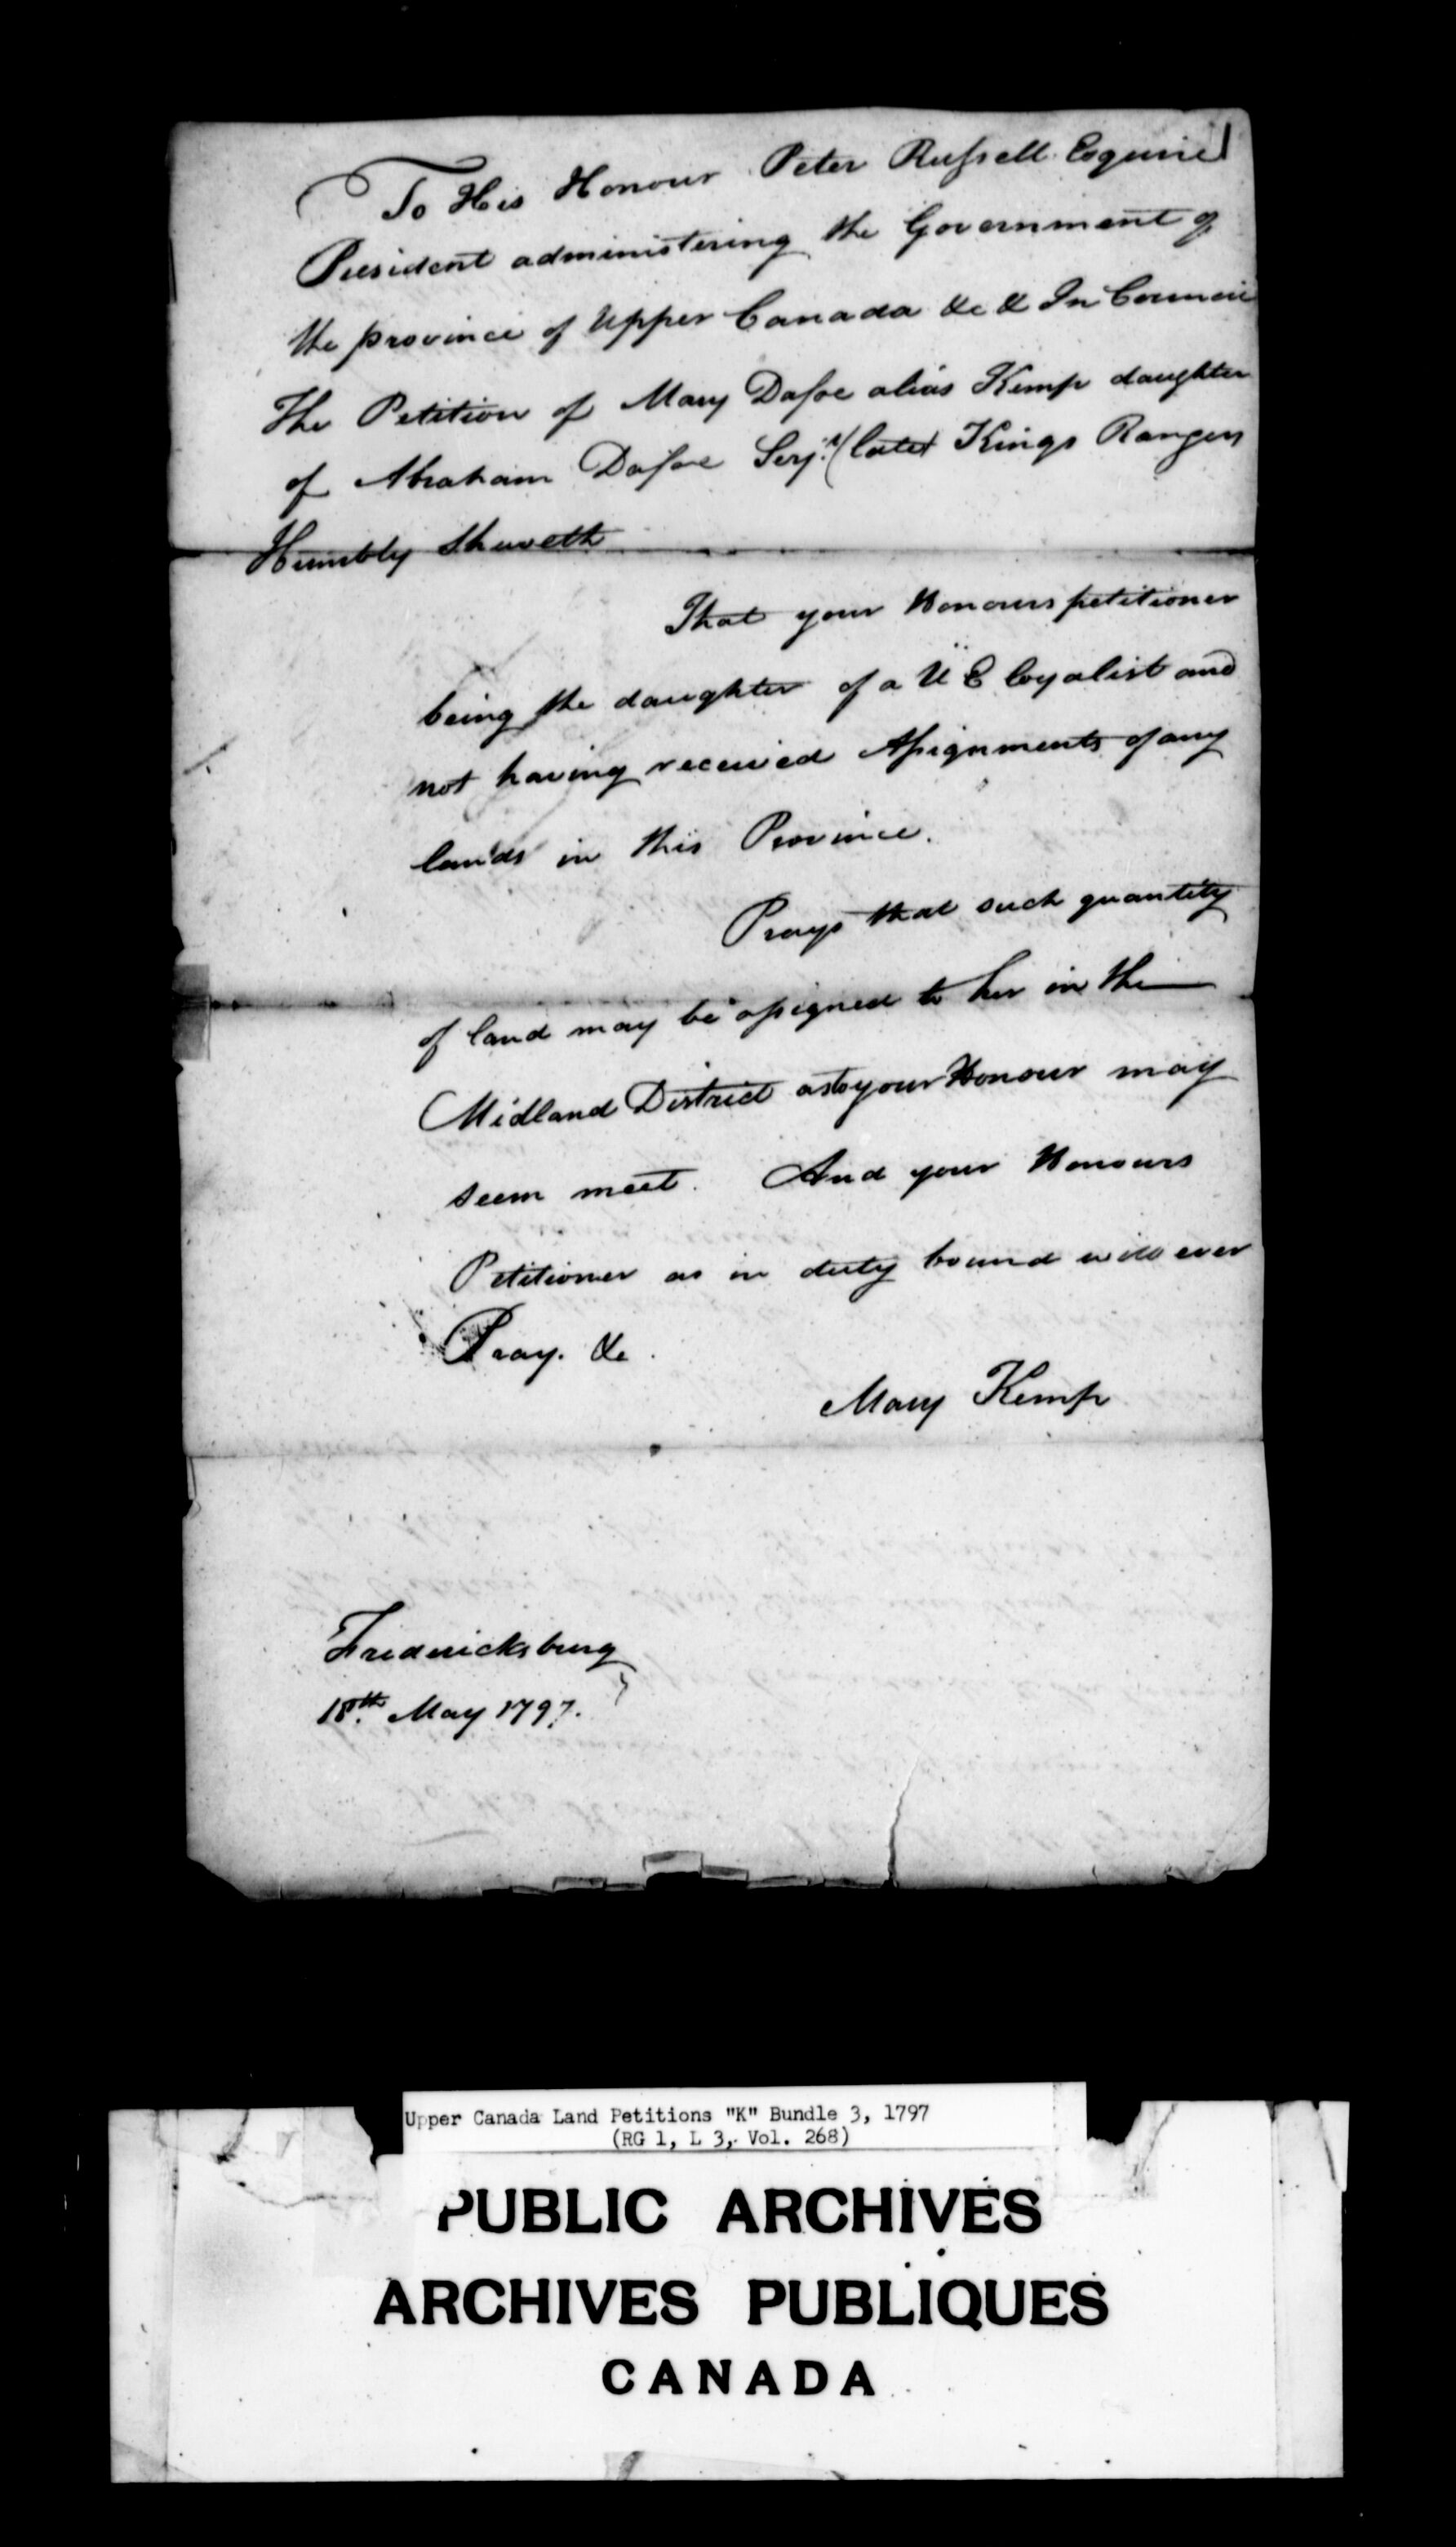 To His Honour Peter Russell Esquire
President administering the Government of
the province of Upper Canada &c & In Council
The Petition of Mary Dafoe alias Kemp daughter
of Abraham Dafoe Serjt (late) Kings Rangers
Humbly Sheweth
That your Honours petitioner
being the daughter of a U E loyalist and
not having received Assignments of any
lands in this Province.
Prays that such quantity
of land may be assigned to her in the
Midland District as to your Honour may
seem meet. And your Honours
Petitioner as in duty bound will ever
Pray. &c.
Mary Kemp
Fredericksburg
18th May 1797.
Upper Canada Land Petitions "K" Bundle 3, 1797
(RG 1, L 3, Vol. 268)
PUBLIC ARCHIVES
ARCHIVES PUBLIQUES
CANADA